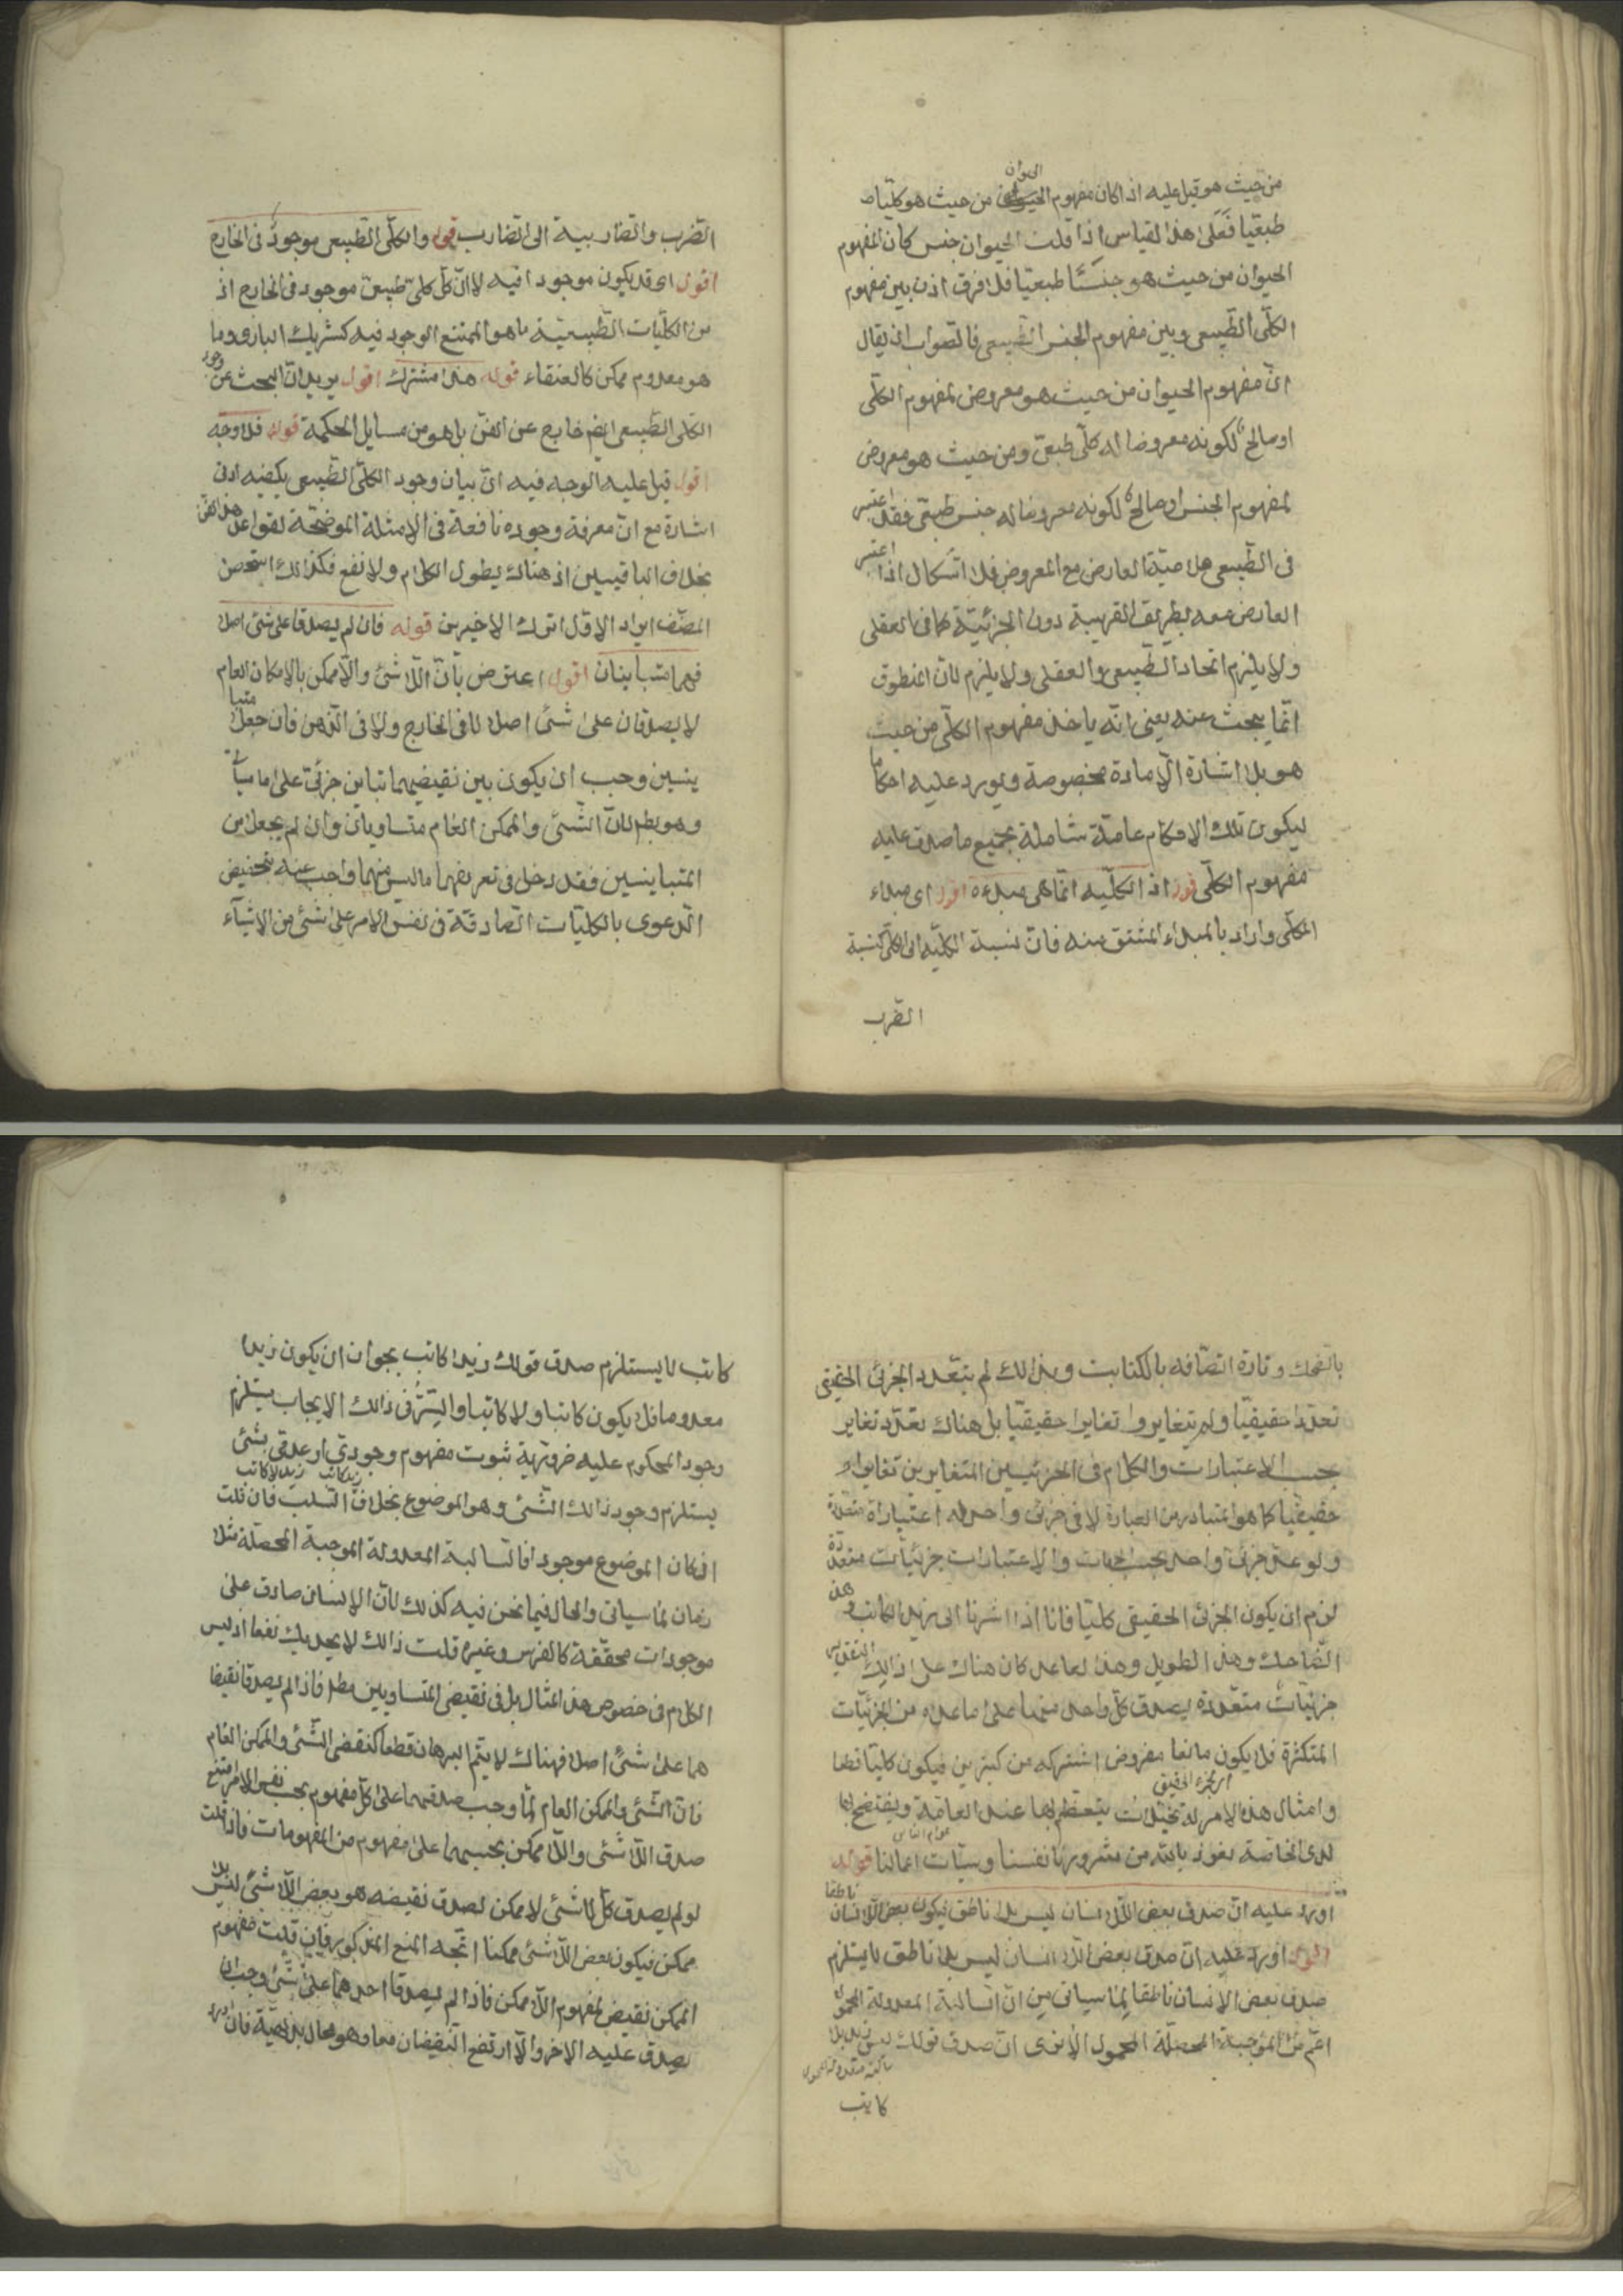 من حيث هو قيل عليه اذ اكان مفهوم الحيوان من حيث هو كليا
طبعيا فعلى هذا القياس اذا قلت الحيوان جنس كان المفهوم
الحيوان من حيث هو جنسا طبعيا فلا فرق اذن بين مفهوم
الكلّى الطّبيعى وبين مفهوم الجنس الطّبيعى فالصّواب ان يقال
انّ مفهوم الحيوان من حيث هو معروض لمفهوم الكلّى
او صالح لكونه معروضا له كلّى طبعىّ ومن حيث هو معروض
لمفهوم الجنس او صالح لكونه معروضا له جنس طبعىّ فقد اعتبر
فى الطّبيعى صلاحيّة العارض مع المعروض فلا اشكال اذا اعتبر
العارض معه بطريق القيدية دون الجزئيّة كما فى العقلى
ولا يلزم اتحاد الطّبيعى والعقلى ولا يلزم لانّ المنطوق
انّما يبحث عنه يعنى انّه ياخذ مفهوم الكلّى من حيث
هو بلا اشارة الى مادة مخصوصة ويورد عليه احكاما
ليكون تلك الاحكام عامّة شاملة بجميع ما صدق عليه
مفهوم الكلّى قوله اذ الكلّيه انّما هى مبدءه اقول اى مبداء
الكلّى واراد بالمبداء المشتق منه فانّ نسبة الكليّه الى الكلّى كنسبة
الضّرب
الضّرب والضّاربية الى الضّارب قوله والكلّى الطّبيعى موجود فى الخارج
اقول اى قد يكون موجودا فيه لا انّ كلّ كلىّ طبيعىّ موجود فى الخارج اذ
من الكلّيات الطّبيعيّة ما هو الممتنع الوجود فيه كشريك البارى وما
هو معدوم ممكن كالعنقاء قوله هذا مشترك اقول يريد انّ البحث عن وجود
الكلى الطّبيعى ايضم خارج عن الفنّ بل هو من مسايل الحكمة قوله فلا وجه
اقول قيل عليه الوجه فيه انّ بيان وجود الكلّى الطّبيعى يكفيه ادنى
اشارة مع انّ معرفة وجوده نافعة فى الامثلة الموضحّة لقواعد هذا الفنّ
بخلاف الباقيين اذ هناك يطول الكلام ولا نفع فكذالك استحسن
المصّنف ايراد الاوّل اترك الاخيرين قوله فان لم يصدقا على شئ اصلا
فهما متباينان اقول اعترض بأنّ اللّاشئ واللّاممكن بالامكان العام
لا يصدقان على شئ اصلا لا فى الخارج ولا فى الذّهن فان جعلا متبا
ينين وجب ان يكون بين نقيضيهما تباين جزئىّ على ما سيأتى
وهو بط لانّ الشّئ والممكن العام متساويان وان لم يجعل من
المتباينين فقد دخل فى تعريفهما ما ليس منهما واجب عنه بتخصيص
الدّعوى بالكليّات الصّادقة فى نفس الامر على شئ من الاشيآء
بالضّحك وتارة اتّصافه بالكتابت وبذالك لم يتعّدد الجزئ الحقيقى
تعدّدا حقيقيّا ولم يتغايروا تغايرا حقيقيّا بل هناك تعدّد تغاير
بحسب الاعتبارات والكلام فى الجزئيين المتغايرين تغايرا
حقيقيّا كما هو المتبادر من العبارة لا فى جزئى واحد له اعتبارات متعدّدة
ولو عدّ جزئى واحد بحسب الجهات والاعتبارات جزئيّات متعدّدة
لزم ان يكون الجزئ الحقيقى كليّا فانا اذا اشرنا الى زيد الكاتب وهذا
الضّاحك وهذا الطويل وهذا القاعد كان هناك على ذالك التقدير
جزئيّات متعدّدة يصدق كلّ واحد منهما على ما عداه من الجزئيّات
المتكثرة فلا يكون مانعا مفروض اشتركه من كثيرين فيكون كليّا قطعا
اى الجزء الحقيقى
وامثال هذه الامر له تخيّلات يتعظم بها عند العامّة ويفتضح بها
عوام الناس
لدى الخاصّة نعوذ بالله من شرور انفسنا وسيّات اعمالنا قوله
اورد عليه انّ صدق بعض اللّا انسان ليس بلا ناطق فيكون بعض اللّاانسان ناطقا
اقول اورد عليه انّ صدق بعض اللّا انسان ليس بلا ناطق لا يستلزم
صدق بعض الانسان ناطقا لما سياتى من انّ السّالبة المعدولة المحمول
اعمّ من الموجبة المحصلّة المحمول الا ترى انّ صدق قولك ليس زيد بلا
سالبة معدولة المحمول
كاتب
كاتب لا يستلزم صدق قولك زيدا كاتب بجوان ان يكون زيدا
معدوما فلا يكون كاتبا ولا كاتبا والسّرّ فى ذالك الايجاب يستلزم
وجود المحكوم عليه ضرورية ثبوت مفهوم وجوديّ او عدمّى بشئ
زيد كاتب زيد لا كاتب
يستلزم وجود ذالك الشّئ وهو الموضوع بخلاف السّلب فان قلت
اذ كان الموضوع موجودا فالسّالبة المعدولة الموجبة المحصّلة مثلا
زمان لما سياتى والحال فيما نحن فيه كذلك لانّ الانسان صادق على
موجودات محقّقة كالفرس وغيره قلت ذالك لا يجديك نفعا اذ ليس
الكلام فى خصوص هذا المثال بل فى نقيض المتساويين مطلقا فاذا لم يصدقا نقيضا
هما على شئ اصلا فهناك لا يتّم البرهان قطعا كنقيض الشّئ والممكن العام
فانّ الشّئ والممكن العام لمّا وجب صدقهما على كلّ مفهوم بحب نفس الامر امتنع
صدق اللّا شئى واللّا ممكن بحسبهما على مفهوم من المفهومات فاذ قلت
لو لم يصدق كلّ لا شئى لا ممكن لصدق نقيضه هو بعض اللّا شئ ليس بلا
ممكن فيكون بعض اللّا شئى ممكنا اتّجه المنع المذكور فان قلت مفهوم
الممكن نقيض لمفهوم اللّا ممكن فاذا لم يصدقا احدهما على شئ وجب ان
يصدق عليه الاخر والّا ارتفع النّقيضان معا وهو محال بديهيّة فان